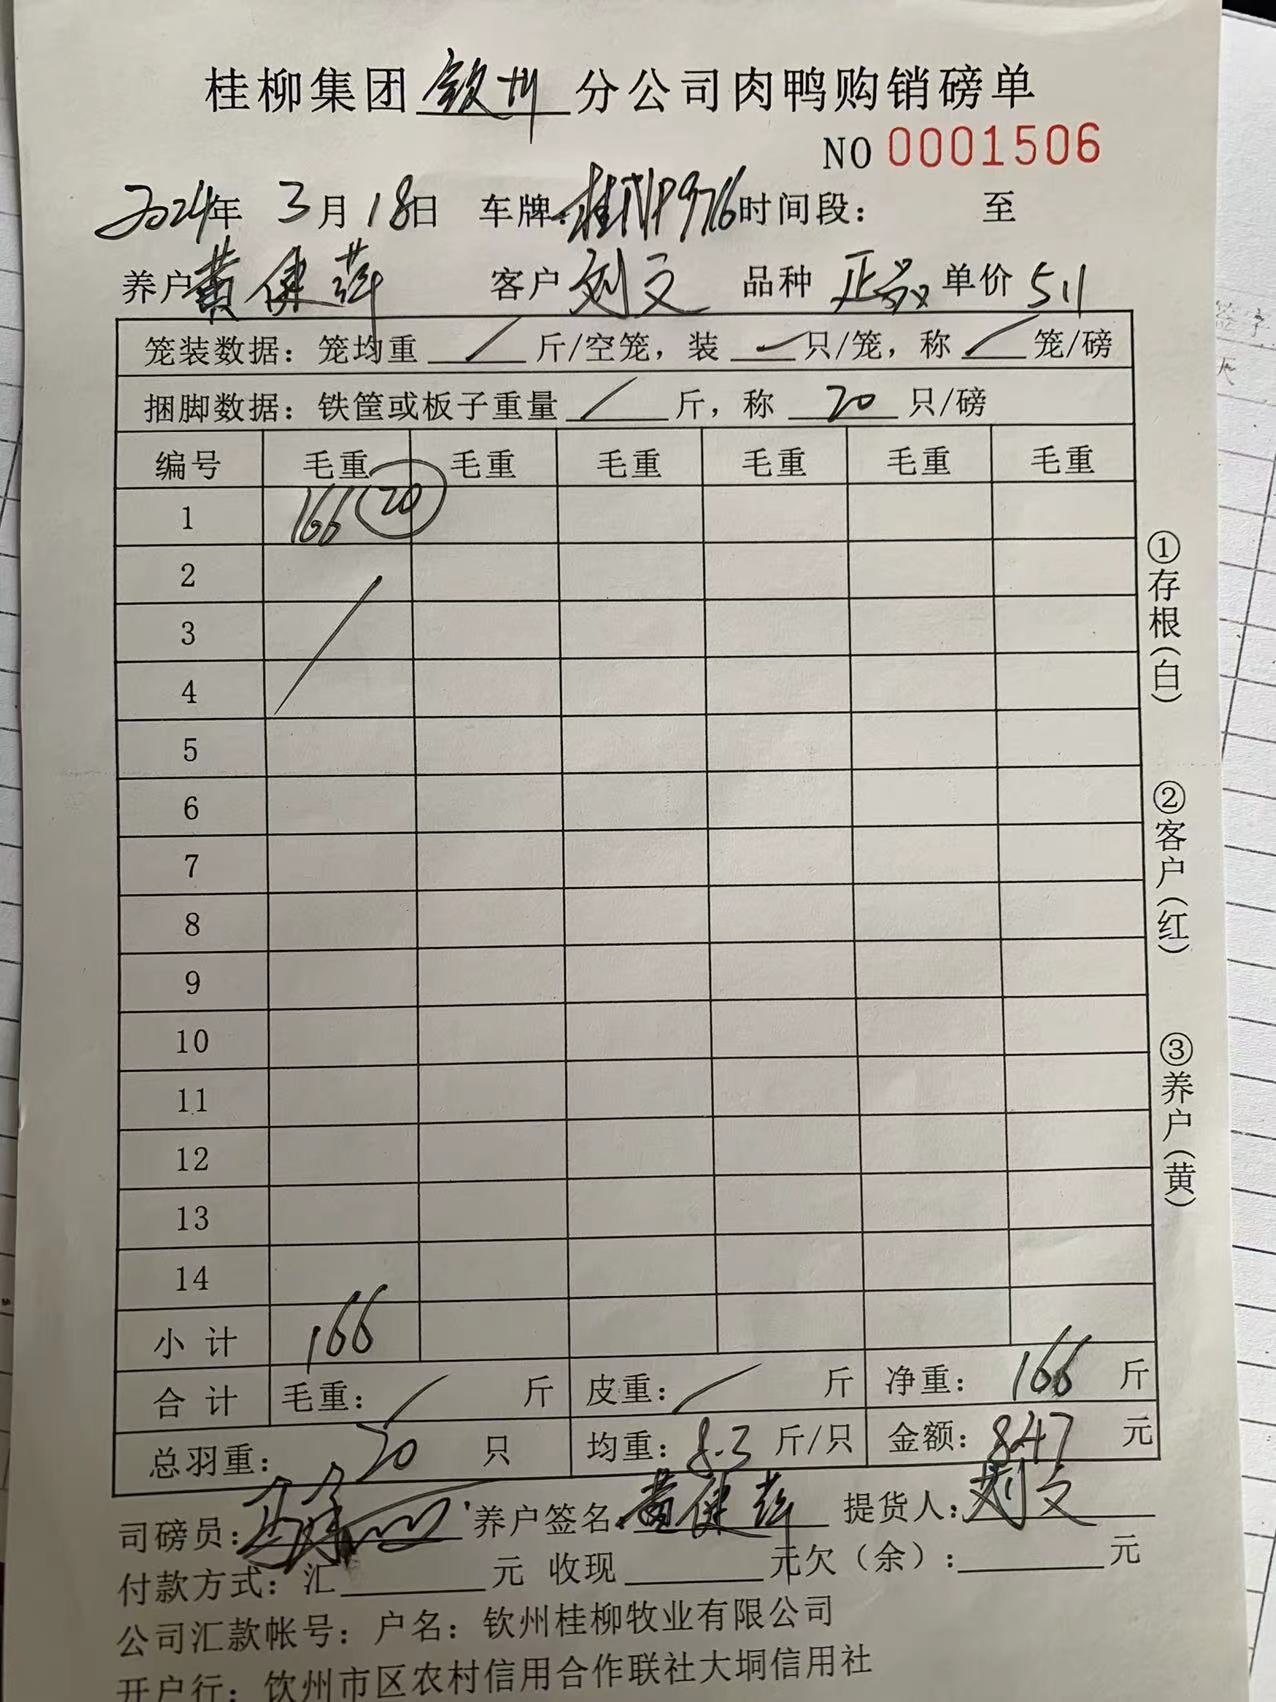 桂柳集团 钦州 分公司肉鸭购销磅单
NO 0001506
2024年 3月18日 车牌: 时间段: 至
养户 黄健萍 客户 刘文 品种 正品 单价 5.1
笼装数据:笼均重 / 斤/空笼,装 / 只/笼,称 / 笼/磅
捆脚数据:铁筐或板子重量 / 斤,称 20 只/磅
编号 毛重 毛重 毛重 毛重 毛重 毛重
1 166 20
2
3
4
5
6
7
8
9
10
11
12
13
14
小计 166
合计 毛重: / 斤 皮重: / 斤 净重: 166 斤
总羽重: 20 只 均重: 8.3 斤/只 金额: 847 元
司磅员: 养户签名: 黄健萍 提货人: 刘文
付款方式:汇 元 收现 元欠(余): 元
公司汇款帐号:户名:钦州桂柳牧业有限公司
开户行:钦州市区农村信用合作联社大垌信用社
①存根(白)
②客户(红)
③养户(黄)